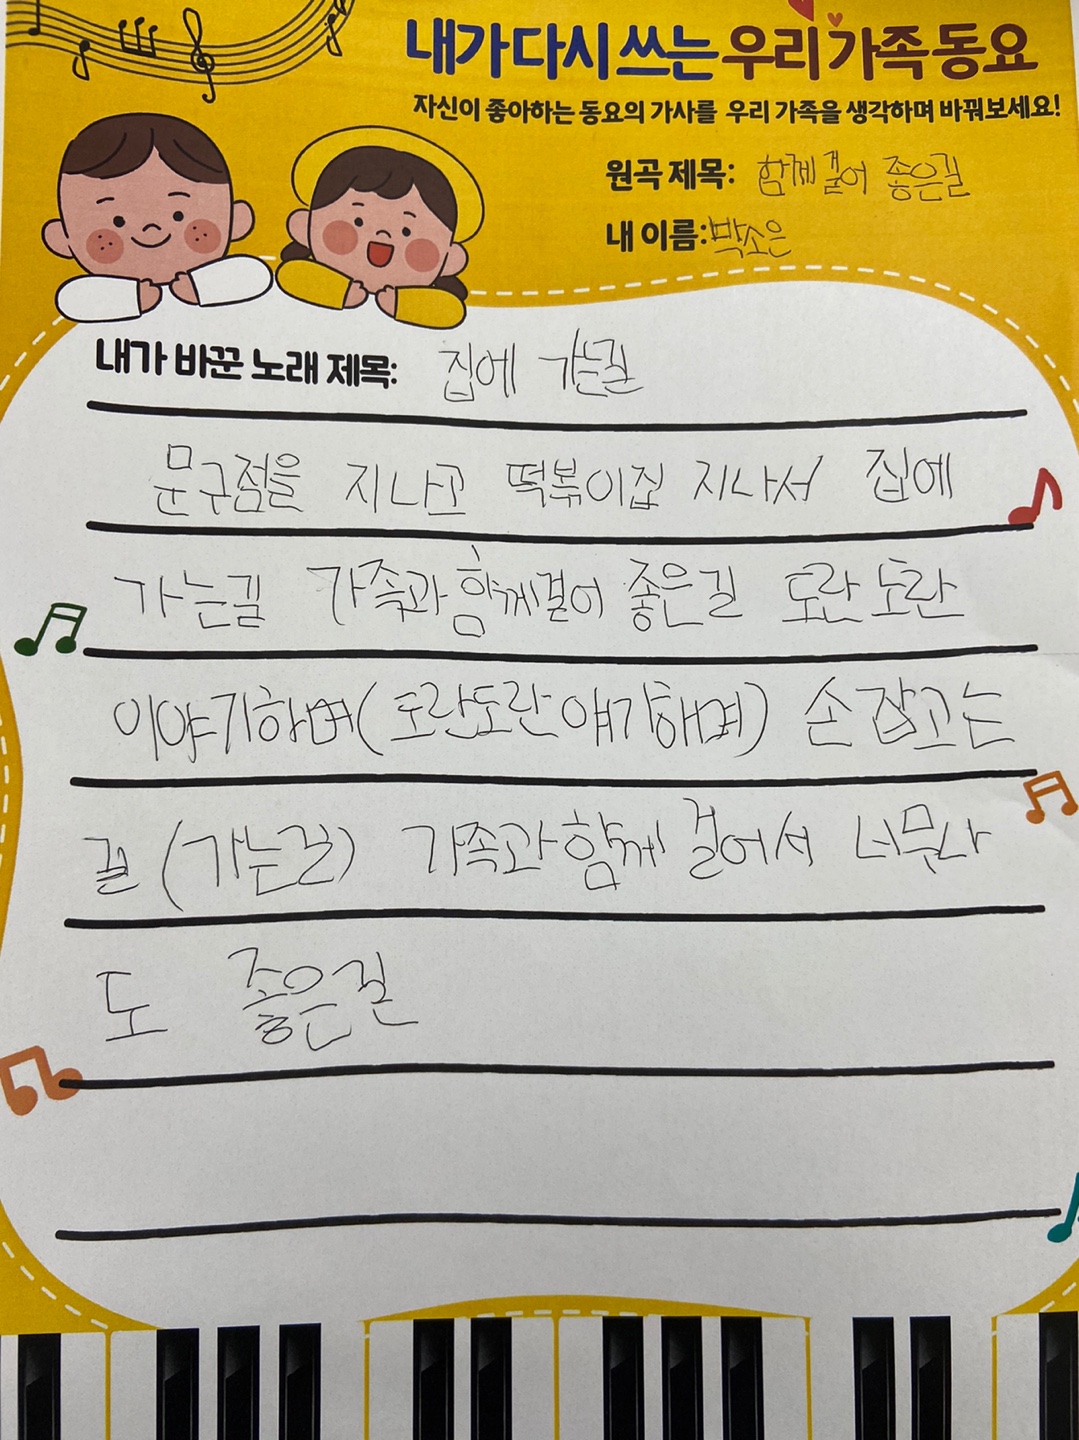 내가 다시 쓰는 우리 가족 동요
자신이 좋아하는 동요의 가사를 우리 가족을 생각하며 바꿔보세요!
원곡 제목: 함께 걸어 좋은길
내 이름: 박소은
내가 바꾼 노래 제목: 집에 가는길
문구점을 지나고 떡볶이집 지나서 집에
가는길 가족과 함께걸어 좋은길 도란 도란
이야기하며(도란도란 얘기해며) 손잡고는
길 (가는길) 가족과 함께 걸어서 너무나
도 좋은길